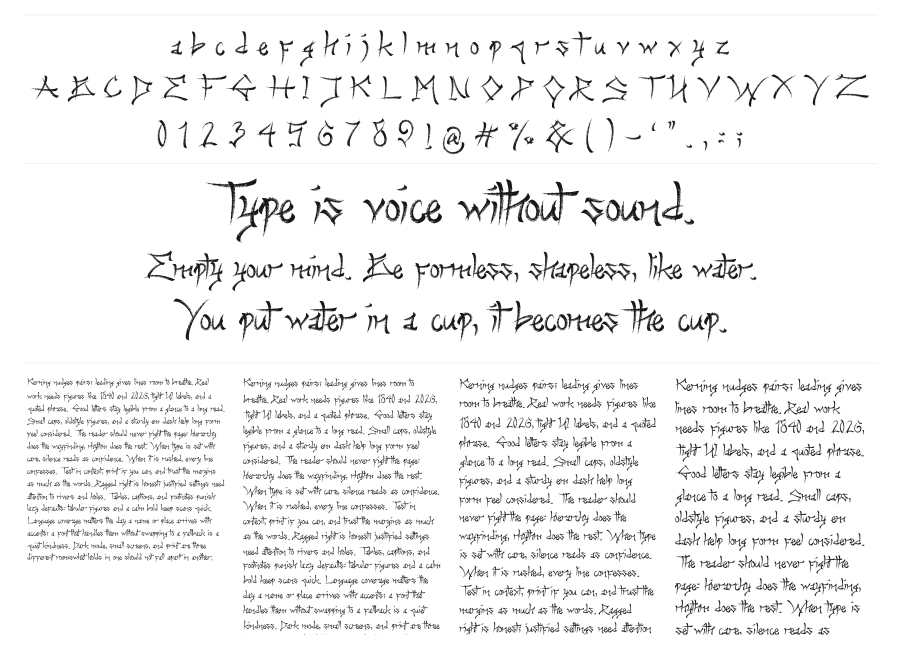 a b c d e f g h i j k l m n o p q r s t u v w x y z
A B C D E F G H I J K L M N O P Q R S T U V W X Y Z
0 1 2 3 4 5 6 7 8 9 ! @ # % & ( ) - ‘ ” . , : ;
Type is voice without sound.
Empty your mind. Be formless, shapeless, like water.
You put water in a cup, it becomes the cup.
Kerning nudges pairs; leading gives lines room to breathe. Real
work needs figures like 1840 and 2026, tight UI labels, and a
quoted phrase. Good letters stay legible from a glance to a long read.
Small caps, oldstyle figures, and a sturdy em dash help long form
feel considered. The reader should never fight the page: hierarchy
does the wayfinding, rhythm does the rest. When type is set with
care, silence reads as confidence. When it is rushed, every line
confesses. Test in context, print if you can, and trust the margins
as much as the words. Ragged right is honest; justified settings need
attention to rivers and holes. Tables, captions, and footnotes punish
lazy defaults: tabular figures and a calm bold keep scans quick.
Language coverage matters the day a name or place arrives with
accents: a font that handles them without swapping to a fallback is a
quiet kindness. Dark mode, small screens, and print are three
different rooms; what holds in one should not fall apart in another.
Kerning nudges pairs; leading gives lines room to
breathe. Real work needs figures like 1840 and 2026,
tight UI labels, and a quoted phrase. Good letters stay
legible from a glance to a long read. Small caps, oldstyle
figures, and a sturdy em dash help long form feel
considered. The reader should never fight the page:
hierarchy does the wayfinding, rhythm does the rest.
When type is set with care, silence reads as confidence.
When it is rushed, every line confesses. Test in
context, print if you can, and trust the margins as much
as the words. Ragged right is honest; justified settings
need attention to rivers and holes. Tables, captions, and
footnotes punish lazy defaults: tabular figures and a calm
bold keep scans quick. Language coverage matters the
day a name or place arrives with accents: a font that
handles them without swapping to a fallback is a quiet
kindness. Dark mode, small screens, and print are three
Kerning nudges pairs; leading gives lines
room to breathe. Real work needs figures like
1840 and 2026, tight UI labels, and a quoted
phrase. Good letters stay legible from a
glance to a long read. Small caps, oldstyle
figures, and a sturdy em dash help long
form feel considered. The reader should
never fight the page: hierarchy does the
wayfinding, rhythm does the rest. When type
is set with care, silence reads as confidence.
When it is rushed, every line confesses.
Test in context, print if you can, and trust the
margins as much as the words. Ragged
right is honest; justified settings need attention
Kerning nudges pairs; leading gives
lines room to breathe. Real work
needs figures like 1840 and 2026,
tight UI labels, and a quoted phrase.
Good letters stay legible from a
glance to a long read. Small caps,
oldstyle figures, and a sturdy em
dash help long form feel considered.
The reader should never fight the
page: hierarchy does the wayfinding,
rhythm does the rest. When type is
set with care, silence reads as